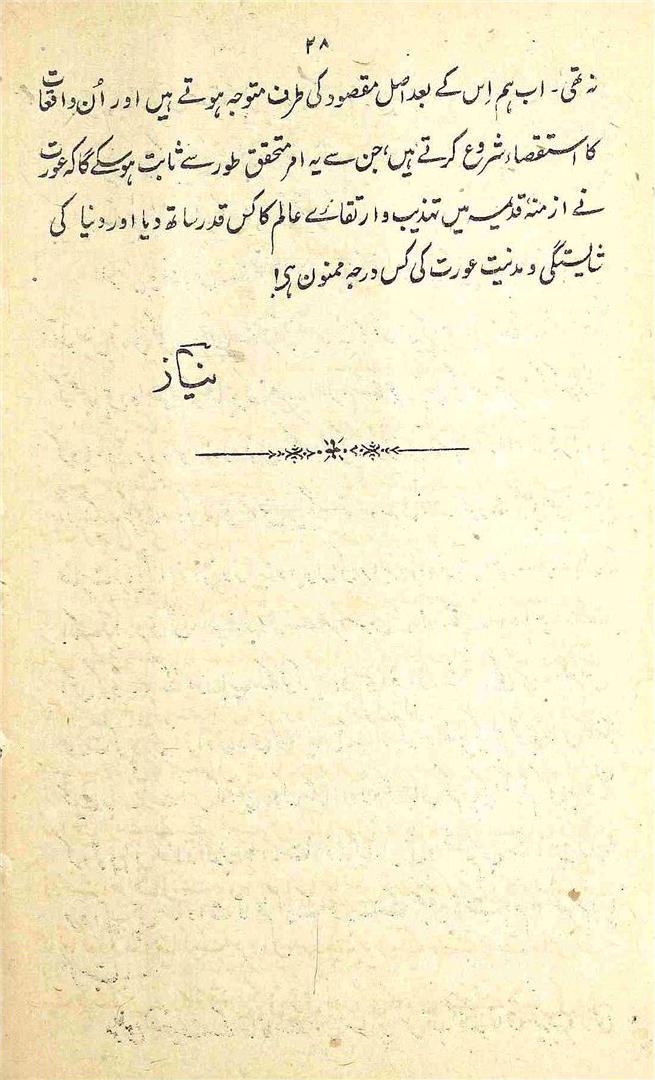 ۲۸
نہ تھی۔ اب ہم اِس کے بعد اصل مقصود کی طرف متوجہ ہوتے ہیں اور اُن واقعات
کا استقصاء شروع کرتے ہیں، جن سے یہ امر متحقق طور سے ثابت ہو سکے گا کہ عورت
نے ازمنۂ قدیمہ میں تہذیب و ارتقائے عالم کا کس قدر ساتھ دیا اور دنیا کی
شایستگی و مدنیت عورت کی کس درجہ ممنون ہی!
نیاز